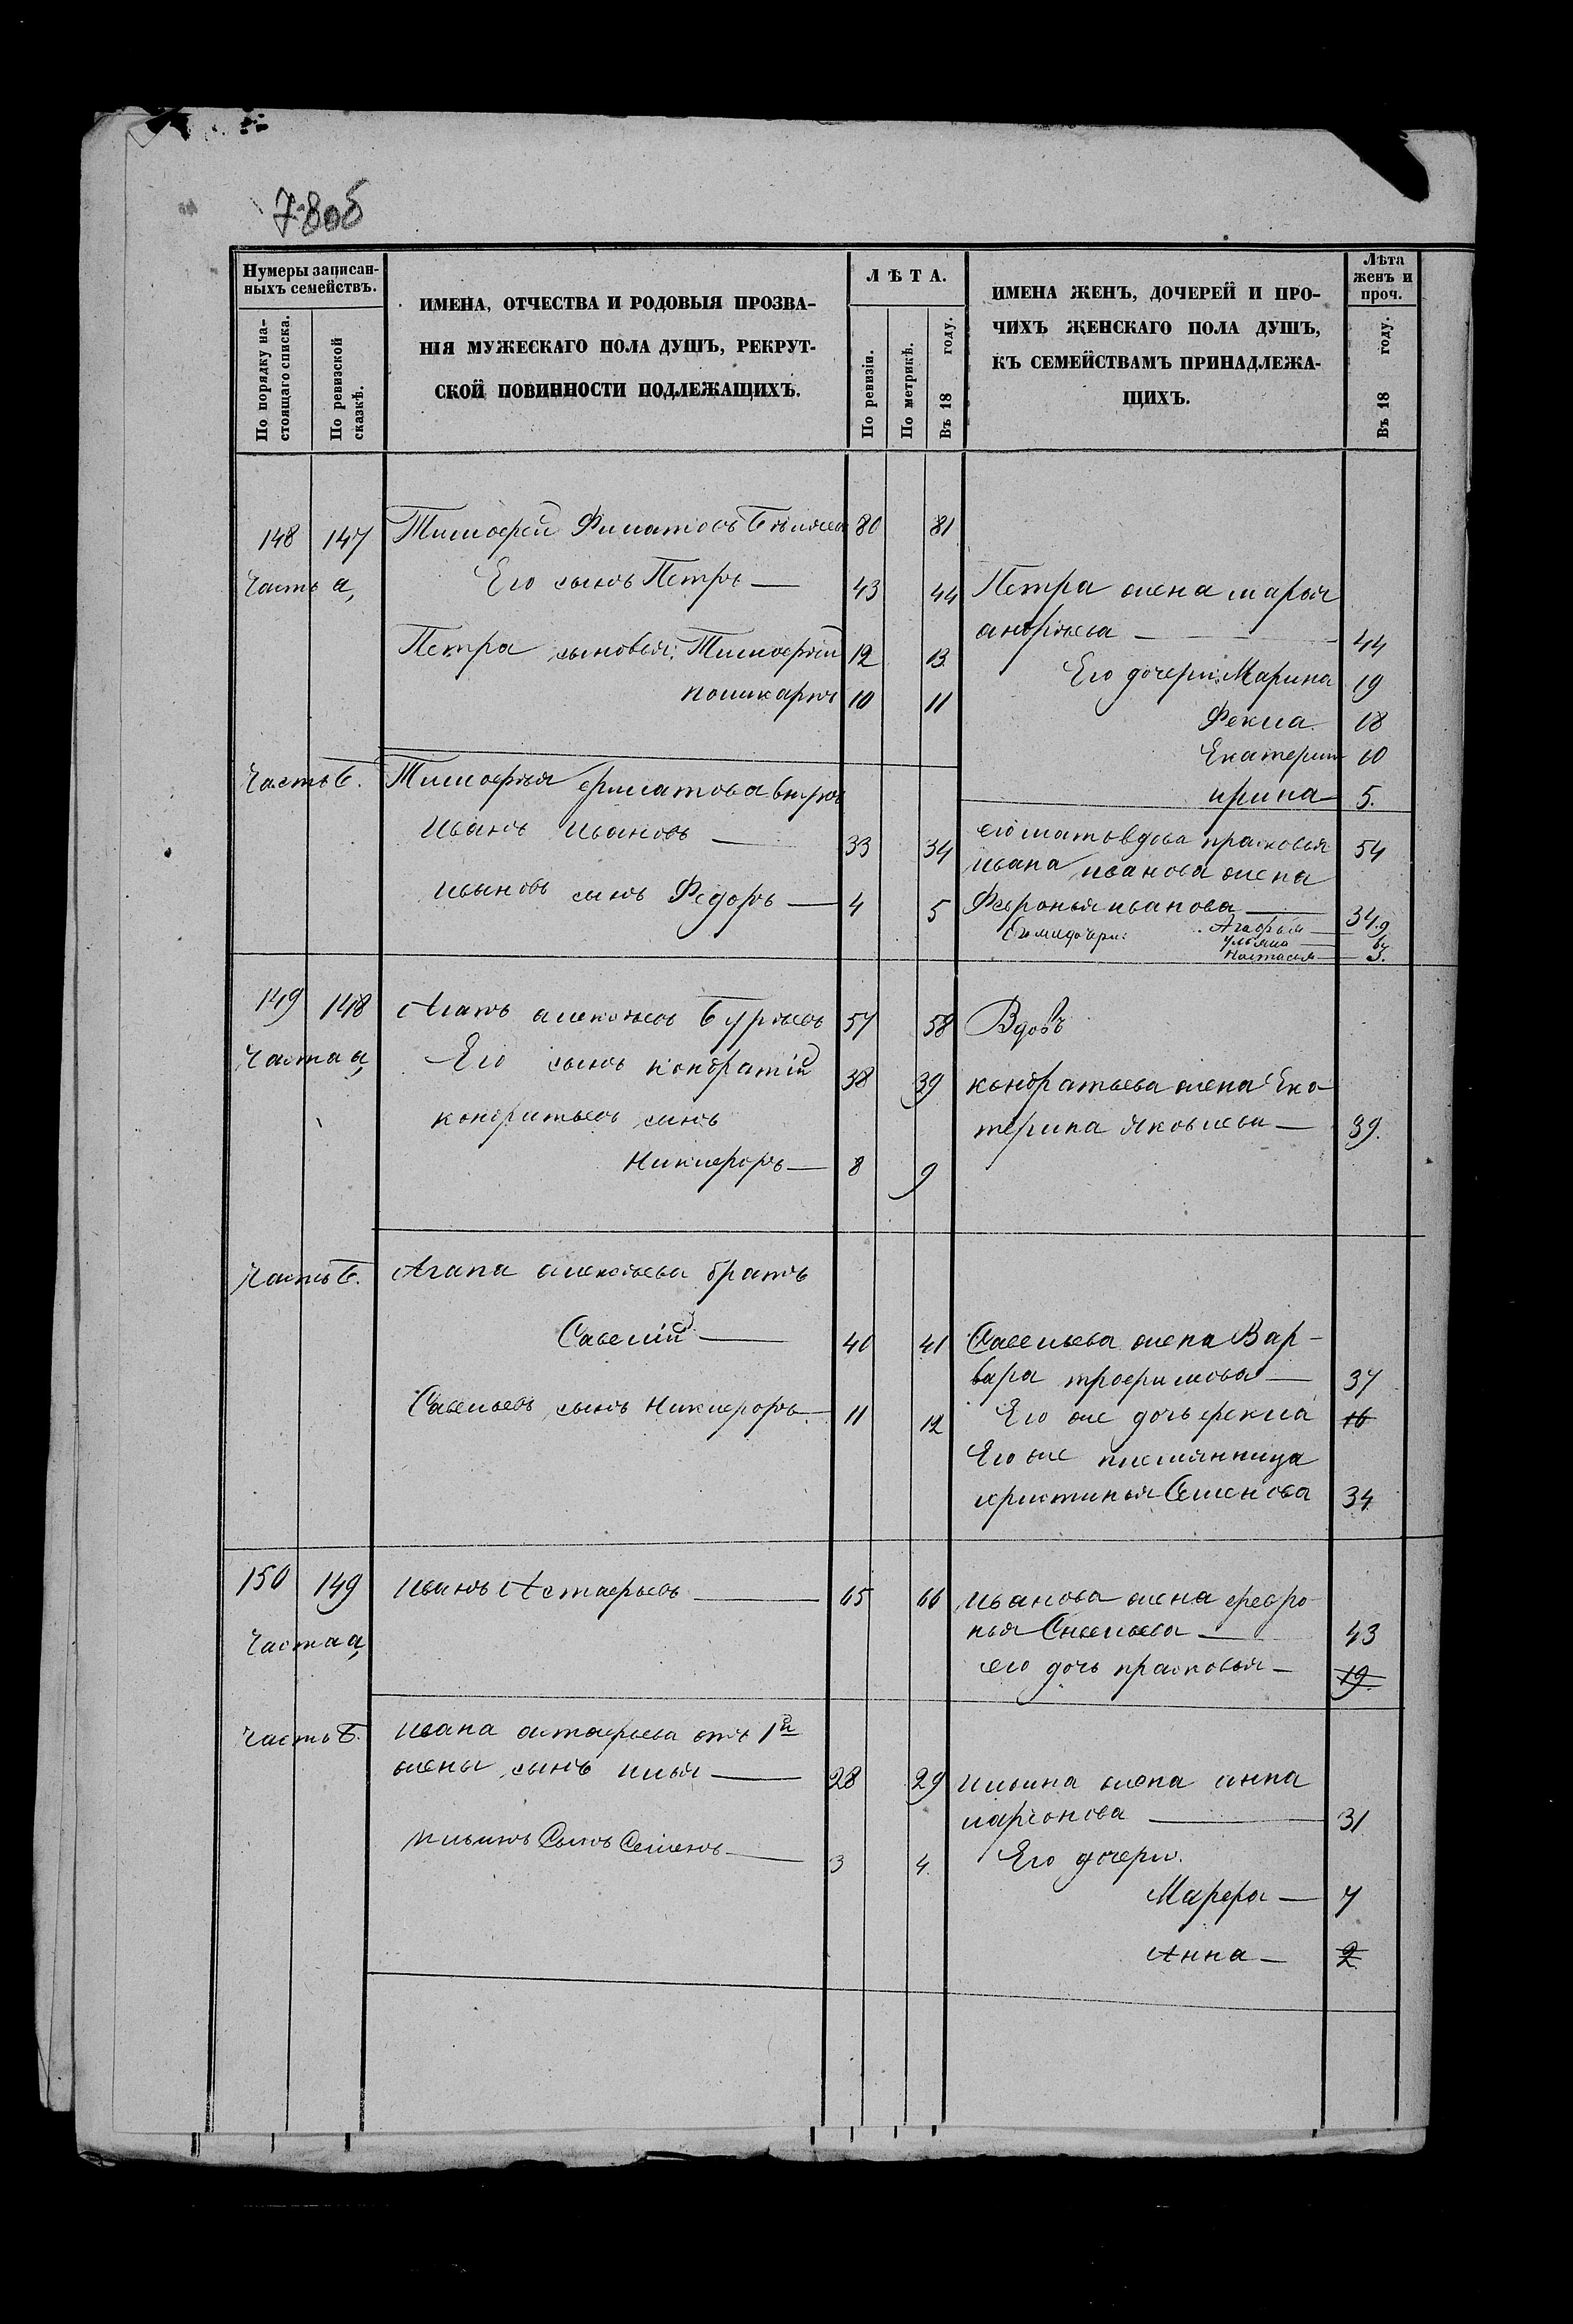 7-8об
Нумеры записан-
ныхъ семействъ.
По порядку на-
стоящаго списка.
По ревизской
сказкѣ.
ИМЕНА, ОТЧЕСТВА И РОДОВЫЯ ПРОЗВА-
НІЯ МУЖЕСКАГО ПОЛА ДУШЪ, РЕКРУТ-
СКОЙ ПОВИННОСТИ ПОДЛЕЖАЩИХЪ.
ЛѢТА.
По ревизіи.
По метрикѣ.
Въ 18 году.
ИМЕНА ЖЕНЪ, ДОЧЕРЕЙ И ПРО-
ЧИХЪ ЖЕНСКАГО ПОЛА ДУШЪ,
КЪ СЕМЕЙСТВАМЪ ПРИНАДЛЕЖА-
ЩИХЪ.
Лѣта
женъ и
проч.
Въ 18 году.
148 147 Тимофей Филатовъ 80 81
Часть а, Его сынъ Петръ 43 44 Петра жена марья
андрѣева 44
Петра сыновья: Тимофѣй 12 13
Его дочери: Марина 19
10 11
Фекла 18
Екатерин 10
ирина 5.
Часть б. Тимофѣя филатова внукъ
иванъ ивановъ 33 34
его мать вдова прасковья 54
ивана иванова жена
ивановъ сынъ Федоръ 4 5 Февронья иванова 34
Его же дочери: Агафья 9
Ульяна 6
Настасья 3.
149 148 Агапъ алексѣевъ Бурлевъ 57 58 Вдовъ
Часть а, Его сынъ кондратій 38 39 кондратьева жена Ека-
терина яковлева 39.
кондратьевъ сынъ
Никифоръ 8 9
Часть б. Агапа алексѣева братъ
Савелій 40 41 Савельева жена Вар-
вара трофимова 37
Савельевъ сынъ Никифоръ 11 12 Его же дочь фекла 16
Его же племянница
христинья Семенова 34
150 149 иванъ Астафьевъ 65 66 иванова жена февро-
нья Савельева 43
Часть а,
его дочь прасковья 19.
Часть б. ивана астафьева отъ 1й
жены сынъ илья 28 29 ильина жена анна
ларіонова 31
ильинъ Сынъ Семенъ 3 4. Его дочери.
Марфа 7
Анна 2